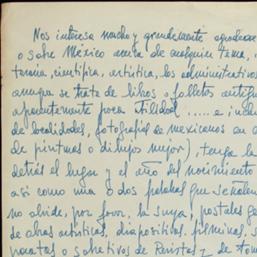 Nos interesa mucho y grandemente agradecer
o sobre México acerca de cualquier tema,
científica, artística, los administrativos
aunque se trate de libros o folletos antigu
aparentemente poca utilidad ..... e inclu
de localidades, fotografías de mexicanos en
de pinturas o dibujos mejor), tenga la
detrás el lugar y el año del nacimiento
asi como una o dos palabras que señalen
no olvide, por favor, la suya, postales
de obras artísticas, diapositivas, filminas, s
o sobretiros de Revistas y de